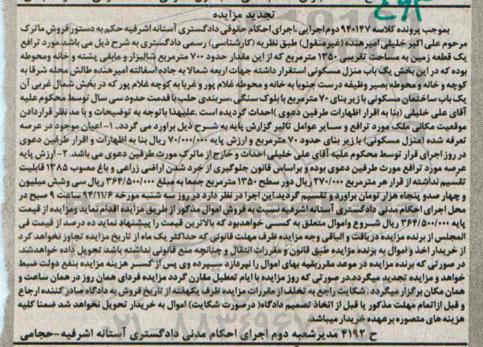 تجدید مزایده
بموجب پرونده کلاسه ۹۴۰۱۴۷ دوم اجرایی، اجرای احکام حقوقی دادگستری آستانه اشرفیه حکم به دستور فروش ماترک
مرحوم علی اکبر خلیلی امیرهنده (غیرمنقول) طبق نظریه (کارشناسی) رسمی دادگستری به شرح ذیل می باشد. مورد ترافع
یک قطعه زمین به مساحت تقریبی ۱۳۵۰ مترمربع که از این مقدار حدود ۷۰۰ مترمربع شالیزار و مابقی پشته و خانه ومحوطه
بوده که در این بخش یک باب منزل مسکونی استقرار داشته جهات اربعه شمالا به جاده آسفالته امیرهنده طالش محله شرقا به
کوچه و خانه و محوطه بصیر وظیفه درست جنوبا به خانه و محوطه غلام پور و غربا به کوچه غلام پور که در بخش شمال غربی آن
یک باب ساختمان مسکونی با زیر بنای ۷۰ مترمربع با بلوک سنگی ،سربندی حلب با قدمت حدود سی سال توسط محکوم علیه
آقای علی خلیلی (بنا به اقرار اظهارات طرفین دعوی )احداث گردیده است .علیهذا باتوجه به توضیحات و با مد نظر قراردادن
موقعیت مکانی ملک مورد ترافع و سایر عوامل تاثیر گزارش پایه به شرح ذیل برآورد می گردد. ۱-اعیان موجود در عرصه
تعرفه شده (منزل مسکونی) با زیر بنای حدود ۷۰ مترمربع و ارزش پایه ۷۰/۰۰۰/۰۰۰ ریال بنا به اظهارات و اقرار طرفین دعوی
در روز اجرای قرار توسط محکوم علیه آقای علی خلیلی احداث و خارج از ماترک مورث طرفین دعوی می باشد. ۲-ارزش پایه
عرصه مورد ترافع مورث طرفین دعوی بوده و براساس قانون جلوگیری از خرد شدن اراضی زراعی و باغ مصوب ۱۳۸۵ قابلیت
تقسیم نداشته از قرار هر مترمربع ۲۷۰/۰۰۰ ریال دور سطح ۱۳۵۰ مترمربع جمعا به مبلغ ۳۶۴/۵۰۰/۰۰۰ ریال سی وشش میلیون
و چهار صدو پنجاه هزار تومان برآورد و تقسیم گردید.این اجرا در نظر دارد در روز سه شنبه مورخه ۹۴/۱۱/۲۰ ساعت ۹ صبح در
محل اجرای احکام مدنی دادگستری آستانه اشرفیه نسبت به فروش اموال مذکور از طریق مزایده اقدام نماید ومزایده از قیمت
پایه ۳۶۴/۵۰۰/۰۰۰ ریال شروع واموال متعلق به کسی خواهدبود که بالاترین قیمت را پیشنهاد نماید ده درصد از قیمت فی
المجلس از برنده مزایده دریافت و الباقی وجه مزایده طی مهلت قانونی که حداکثر یک ماه از تاریخ مزایده تجاوز نخواهد کرد
از خریدار اخذ و اموال به برنده مزایده طبق قانون و مقررات انتقال و چنانچه منع قانونی نداشته باشد تحویل داده خواهدشد.
در صورتی که برنده مزایده در موعد مقرربقیه بهای اموال را نپردازد سپرده وی پس از کسر هزینه مزایده بنفع دولت ضبط
خواهد و مزایده تجدید میگردد.در صورتی که روز مزایده با ایام تعطیل مقارن گردد مزایده فردای همان روز در همان ساعت و
همان مکان برگزار میگردد . شکایت راجع به تخلف از مقررات مزایده ظرف یکهفته از تاریخ فروش به دادگاه صادر کننده ارجاع
و قبل ازاتمام مهلت مذکور یا قبل از اتخاذ تصمیم دادگاه( درصورت شکایت) اموال به خریدار تحویل نخواهد شد ضمنا کلیه
هزینه های متصوره برعهده خریدار میباشد.
ح ۴۱۹۲ مدیرشعبه دوم اجرای احکام مدنی دادگستری آستانه اشرفیه-حجامی